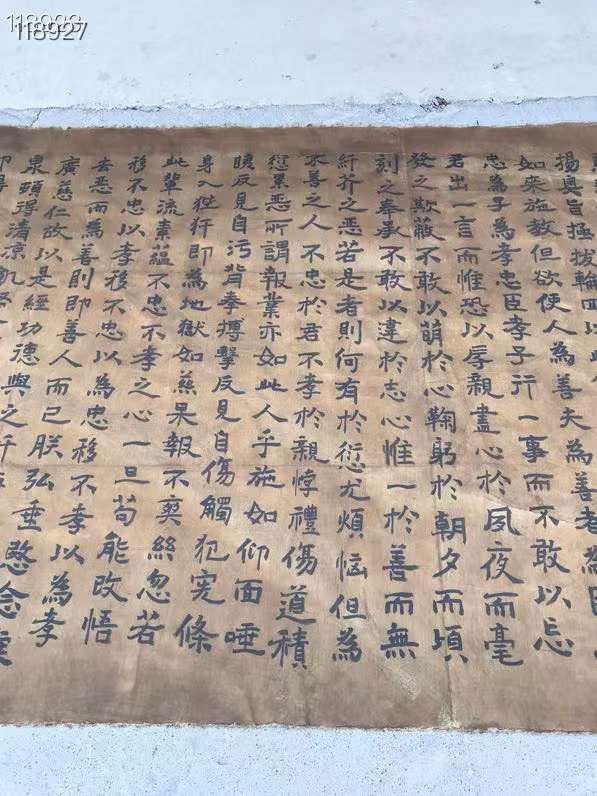 揚奧旨拯拔輪四以此
如來施教但欲使人為善夫為善者為
忠為子為孝忠臣孝子行一事而不敢以忘
君出一言而惟恐以辱親盡心於夙夜而毫
發之欺蔽不敢以萌於心鞠躬於朝夕而頃
刻之奉承不敢以違於志心惟一於善而無
纖芥之惡若是者則何有於愆尤煩惱但為
不善之人不忠於君不孝於親悖禮傷道積
愆累惡所謂報業亦如此人乎施如仰面唾
反見自污背拳搏擊反見自傷觸犯憲條
身入狴犴即為地獄如茲果報不爽絲忽若
此輩流素蘊不忠不孝之心一旦苟能改悟
移不忠以孝移不忠以為忠移不孝以為孝
去惡而為善則即善人而已朕弘垂愍念
廣慈仁故以是經功德與之
泉頭得清凉
118927